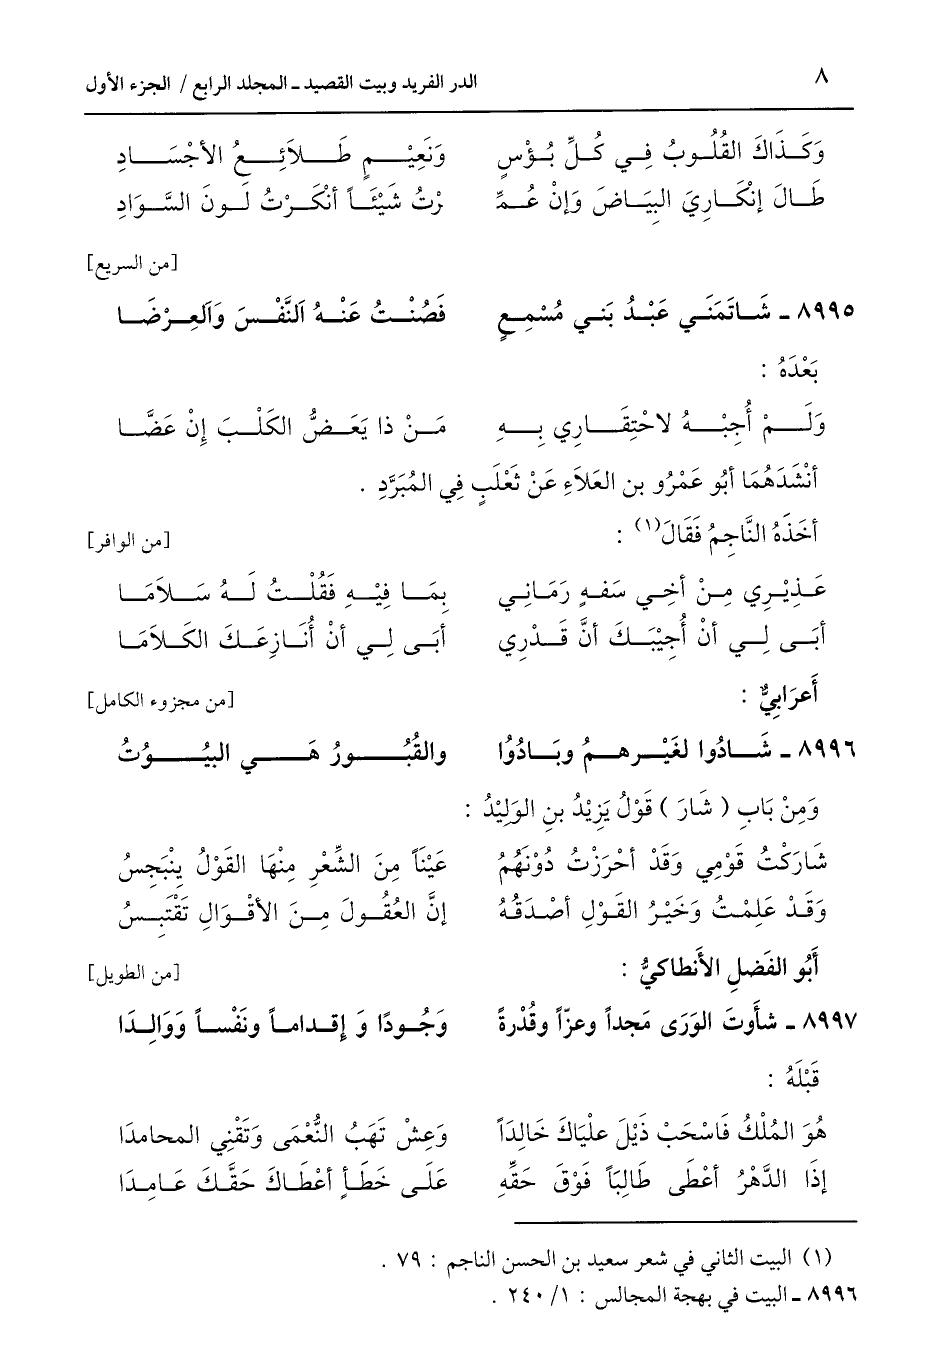 ٨ الدر الفريد وبيت القصيد ـ المجلد الرابع / الجزء الأول
وَكَذَاكَ القُلُوبُ فِي كُلِّ بُؤْسٍ وَنَعِيْمٍ طَلاَئِعُ الأجْسَادِ
طَالَ إنْكَارِيَ البَيَاضَ وَإنْ عُمِّ رْتُ شَيْئَاً أنْكَرْتُ لَونَ السَّوَادِ
[من السريع]
٨٩٩٥ ـ شَاتَمَنَي عَبْدُ بَني مُسْمِعٍ فَصُنْتُ عَنْهُ النَّفْسَ وَالعِرْضَا
بَعْدَهُ :
وَلَمْ أُجِبْهُ لاحْتِقَارِي بِهِ مَنْ ذا يَعَضُّ الكَلْبَ إنْ عَضَّا
أنْشَدَهُمَا أبُو عَمْرُو بن العَلاَءِ عَنْ ثَعْلَبٍ فِي المُبَرَّدِ .
أخَذَهُ النَّاجِمُ فَقَالَ(١) :
[من الوافر]
عَذِيْرِي مِنْ أخِي سَفهٍ رَمَاني بِمَا فِيْهِ فَقُلْتُ لَهُ سَلاَمَا
أبَى لِي أنْ أُجِيْبَكَ أنَّ قَدْرِي أبَى لِي أنْ أُنَازِعَكَ الكَلاَمَا
أَعرَابِيٌّ :
[من مجزوء الكامل]
٨٩٩٦ ـ شَادُوا لغَيْرِهمُ وبَادُوْا والقُبُورُ هَي البيُوْتُ
وَمِنْ بَابِ ( شَارَ ) قَوْلُ يَزِيْدُ بنِ الوَلِيْدُ :
شَارَكْتُ قَوْمِي وَقَدْ أحْرَزْتُ دُوْنَهُمُ عَيْنَاً مِنَ الشِّعْرِ مِنْهَا القَوْلُ يِنْبَجِسُ
وَقَدْ عَلِمْتُ وَخَيْرُ القَوْلِ أصْدَقُهُ إنَّ العُقُولَ مِنَ الأقْوَالِ تَقْتَبِسُ
أَبُو الفَضلِ الأَنطاكيُّ :
[من الطويل]
٨٩٩٧ ـ شأَوتَ الوَرَى مَجداً وعزّاً وقُدْرةً وَجُودًا وَ إقداماً ونَفْساً وَوَالِدَا
قَبْلَهُ :
هُوَ المُلْكُ فَاسْحَبْ ذَيْلَ علْيَاكَ خَالِدَاً وَعِشْ تَهَبُ النُّعْمَى وَتَقْنِي المحامدَا
إذَا الدَّهْرُ أعْطَى طَالِبَاً فَوْقَ حَقِّهِ عَلَى خَطَأٍ أعْطَاكَ حَقَّكَ عَامِدَا
(١) البيت الثاني في شعر سعيد بن الحسن الناجم : ٧٩ .
٨٩٩٦ ـ البيت في بهجة المجالس : ١/ ٢٤٠ .